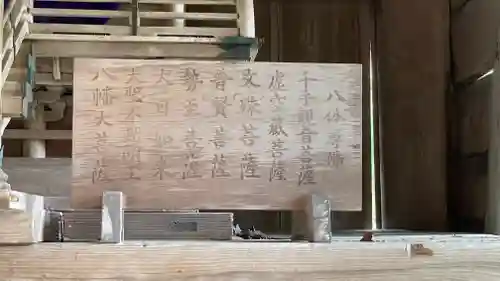 八体守本尊
千手観音菩薩
虚空蔵菩薩
文珠菩薩
普賢菩薩
勢至菩薩
大日如来
大聖不動明王
八幡大菩薩